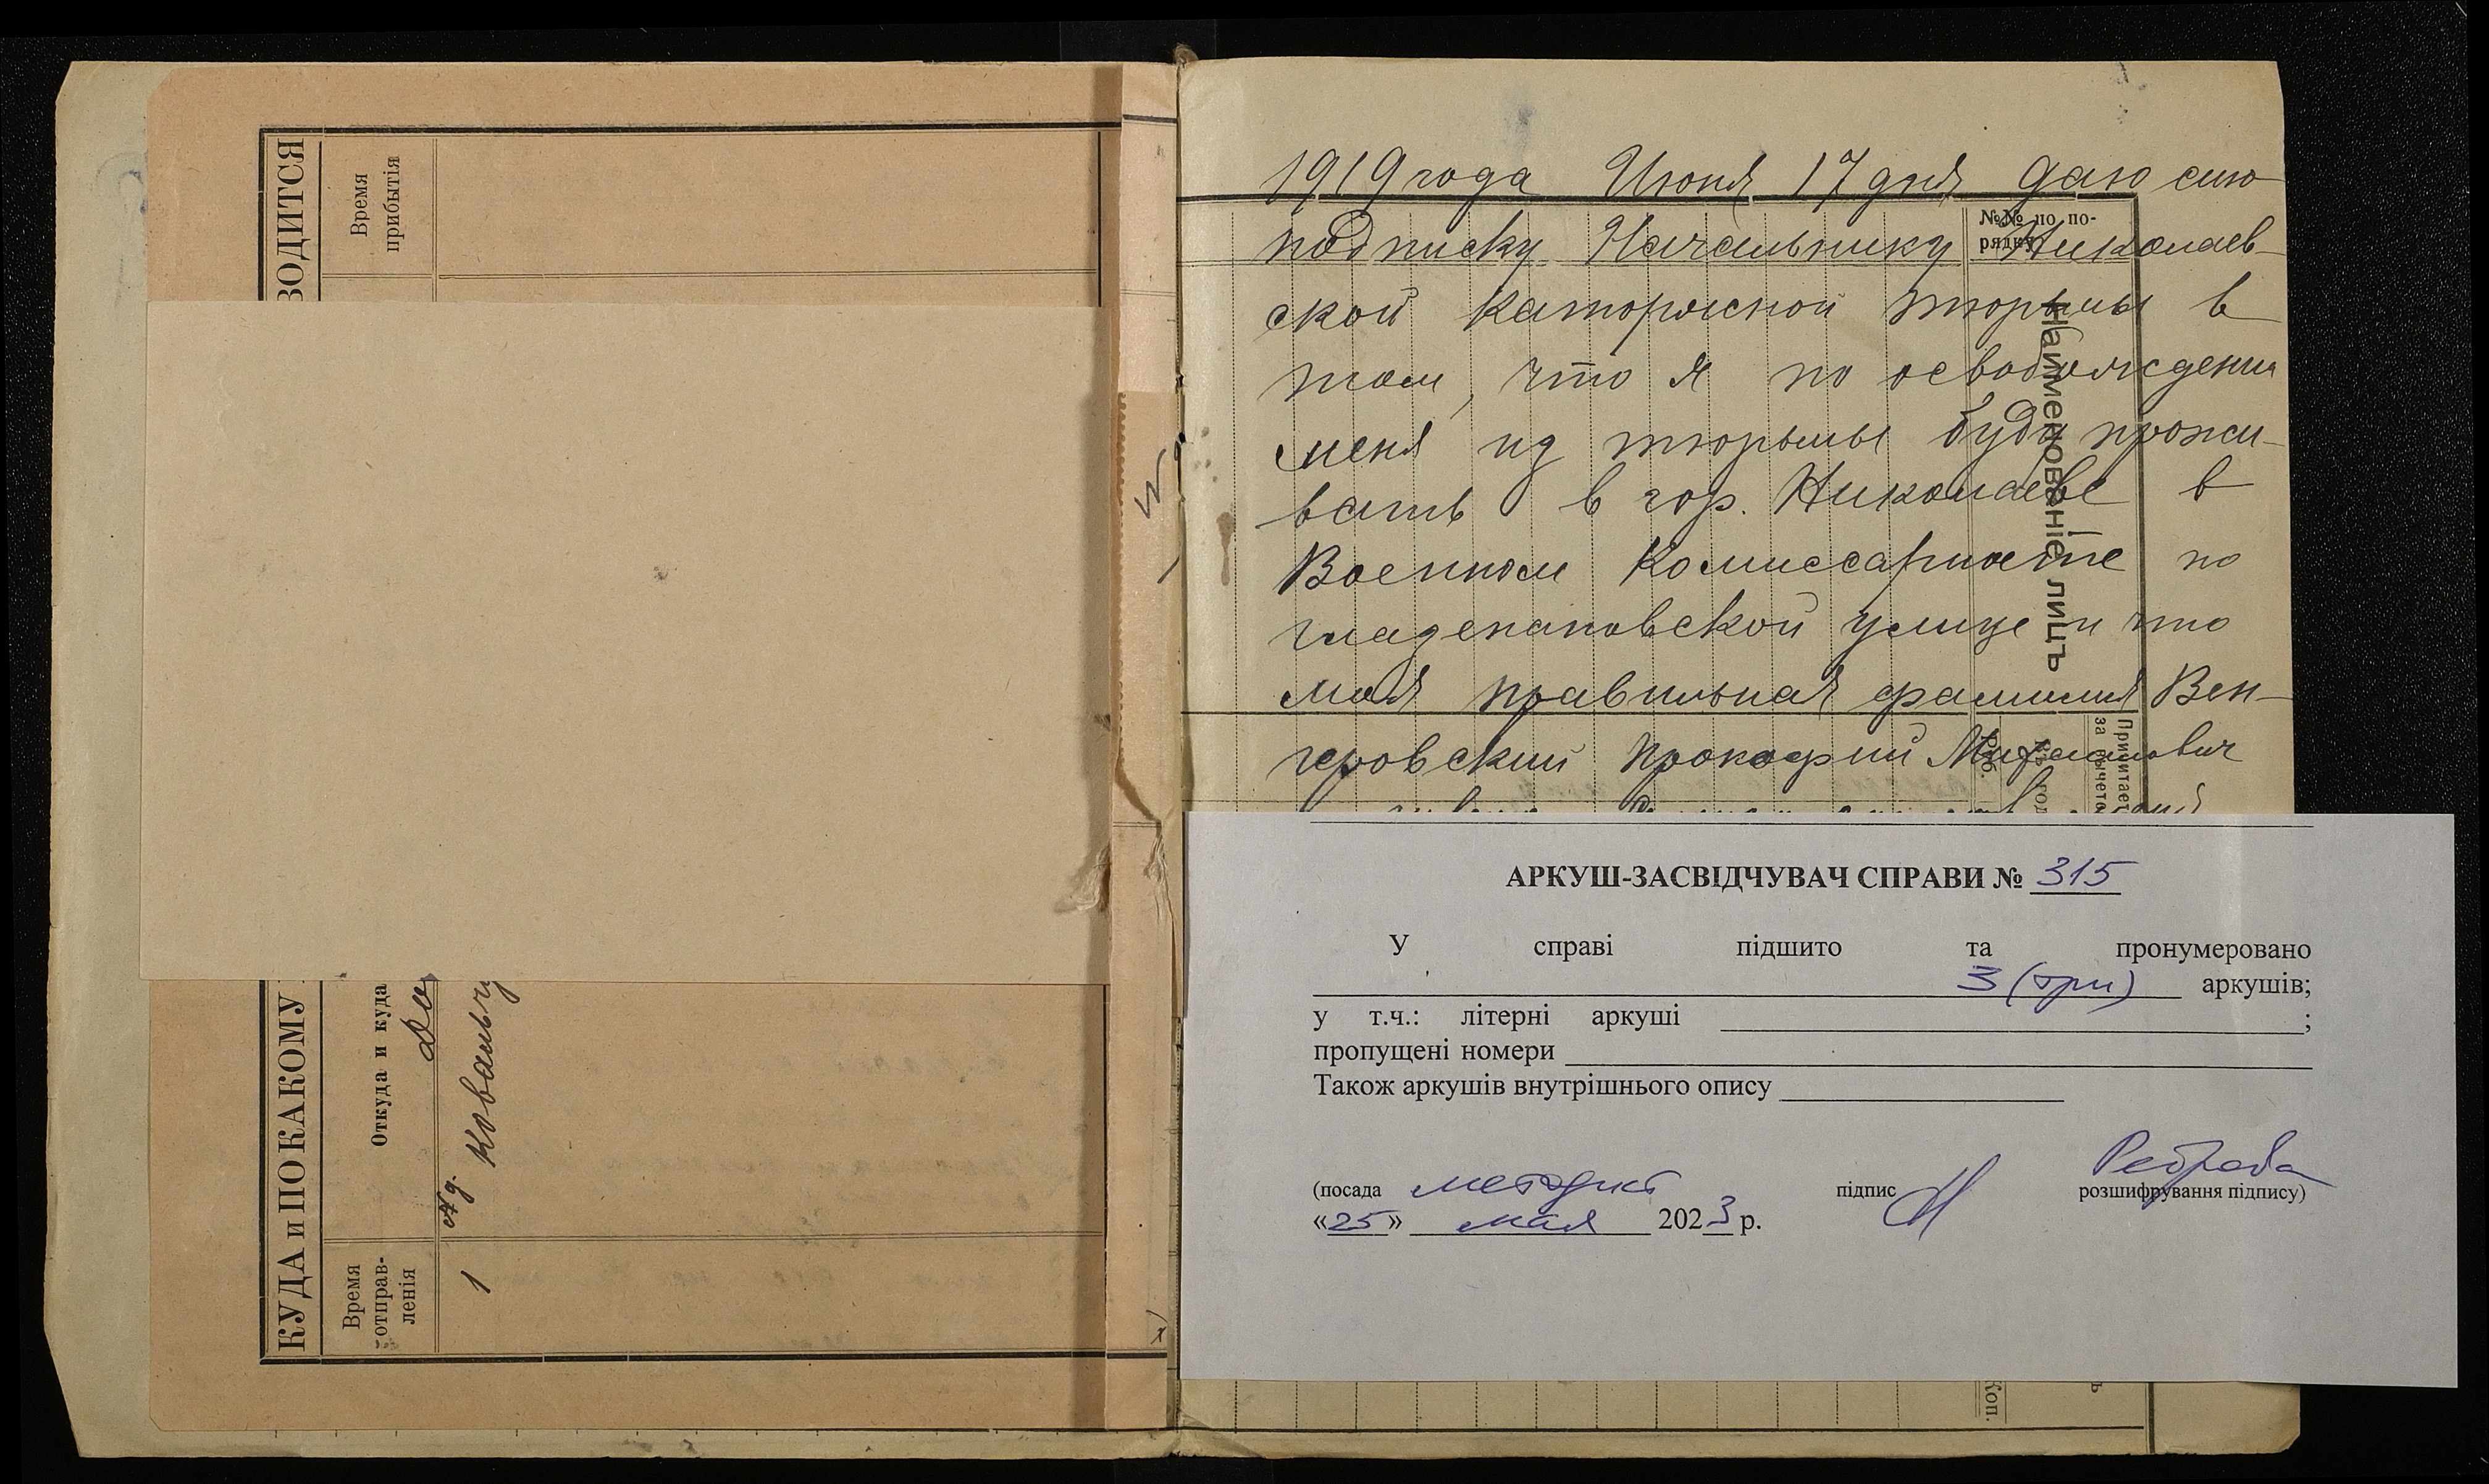 КУДА и ПО КАКОМУ
ВОДИТСЯ
Время
прибытія
Откуда и куда
Время
отправ-
ленія
1
Ковальчу
1919 года Июня 17 дня даю сию
подписку Начальнику Николаев-
ской каторжной тюрьмы в
том, что я по освобождении
меня из тюрьмы буду прожи-
вать в гор. Николаеве в
Военном Комиссариате по
улице и что
моя правильная фамилия Вен-
геровский Прокофий Михайлович
№№ по по-
рядку
Наименованіе лицъ
Причитает
за вычето
Руб.
год
Коп.
АРКУШ-ЗАСВІДЧУВАЧ СПРАВИ № 315
У справі підшито та пронумеровано
3 (три) аркушів;
у т.ч.: літерні аркуші ;
пропущені номери
Також аркушів внутрішнього опису
(посада методист підпис розшифрування підпису)
«25» мая 2023 р.